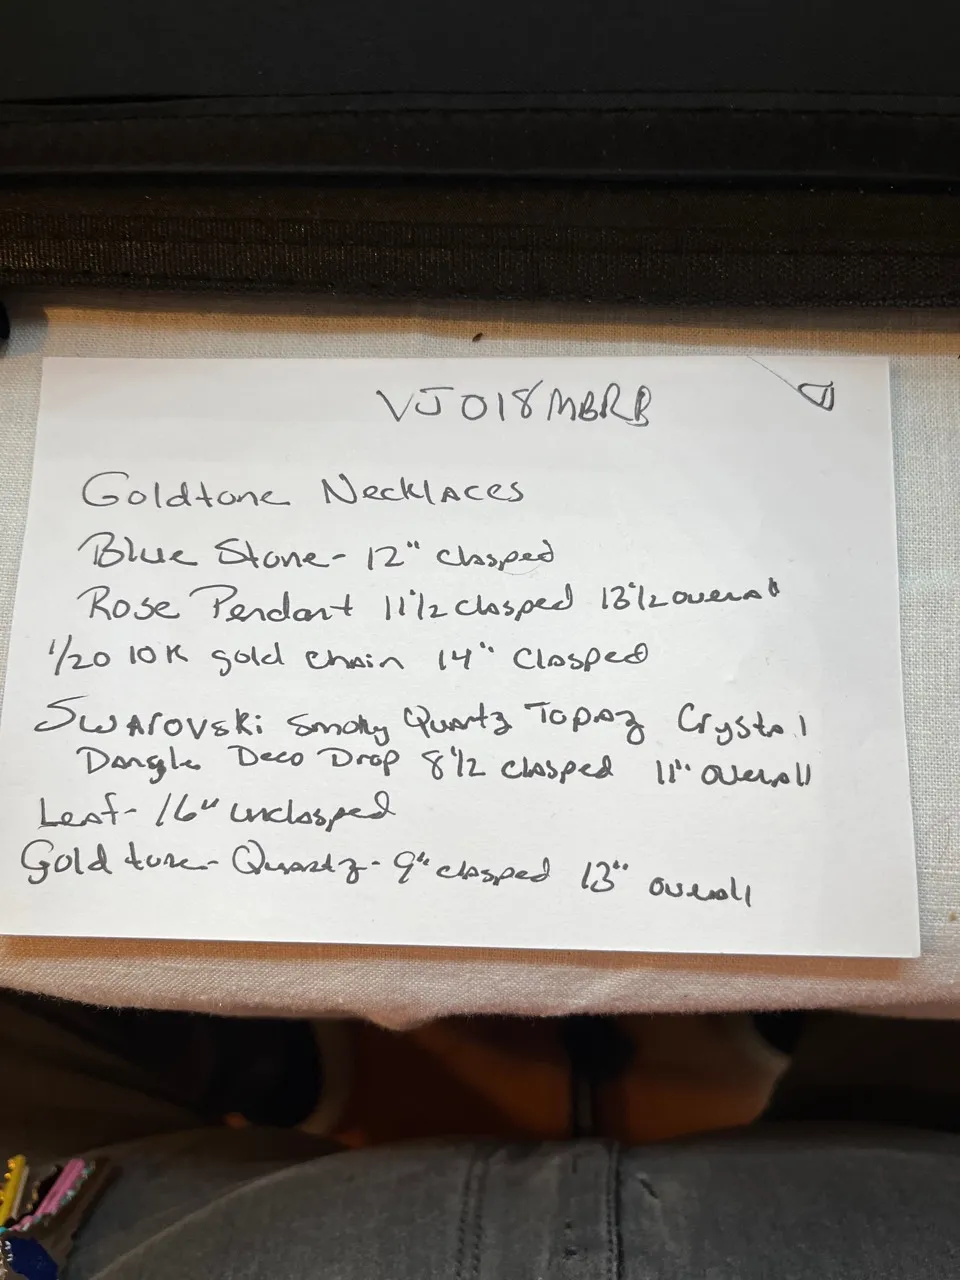 VJ018MBRB
Goldtone Necklaces
Blue Stone- 12" clasped
Rose Pendant 11"1/2 clasped 13"1/2 overall
1/20 10K gold chain 14" clasped
Swarovski Smoky Quartz Topaz Crystal
Dangle Deco Drop 8"1/2 clasped 11" overall
Leaf- 16" unclasped
Gold tone- Quartz- 9" clasped 13" overall